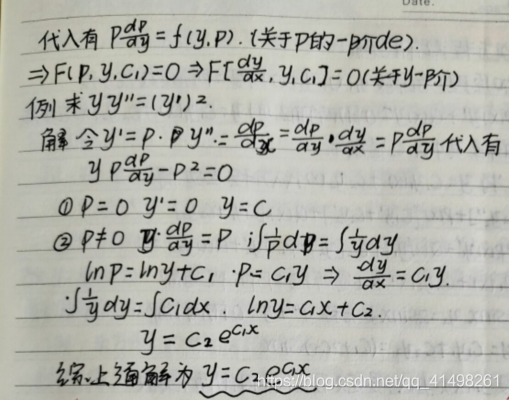 Date.
代入有 P dp/dy = f(y,p). (关于P的一阶de).
⇒ F(P, y, C₁)=0 ⇒ F[dy/dx, y, C₁] = 0 (关于y一阶)
例 求 yy''=(y')².
解 令y'=P. y''=dp/dx=dp/dy·dy/dx=P dp/dy 代入有
y P dp/dy - P²=0
① P=0 y'=0 y=C
② P≠0 y·dp/dy = P ∫1/P dp=∫1/y dy
lnP=lny+C₁ ·P=C₁y ⇒ dy/dx=C₁y.
·∫1/y dy=∫C₁dx lny=C₁x+C₂.
y=C₂e^C₁x
综上通解为 y=C₂e^C₁x
https://blog.csdn.net/qq_41498261